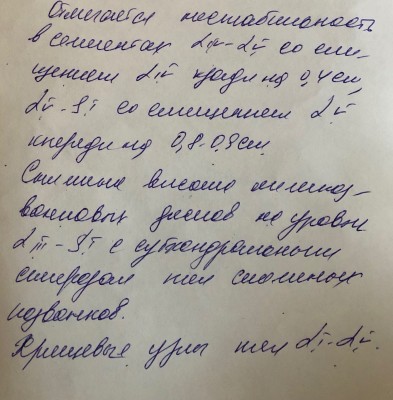 Отмечается нестабильность
в сегментах LIV-LV со сме-
щением LIV кзади на 0,4 см,
LV-SI со смещением LV
кпереди на 0,8-0,9 см
Снижена высота межпоз-
вонковых дисков на уровне
LIII-SI с субхондральным
склерозом тел смежных
позвонков.
Хрящевые узлы тел LI-LV.